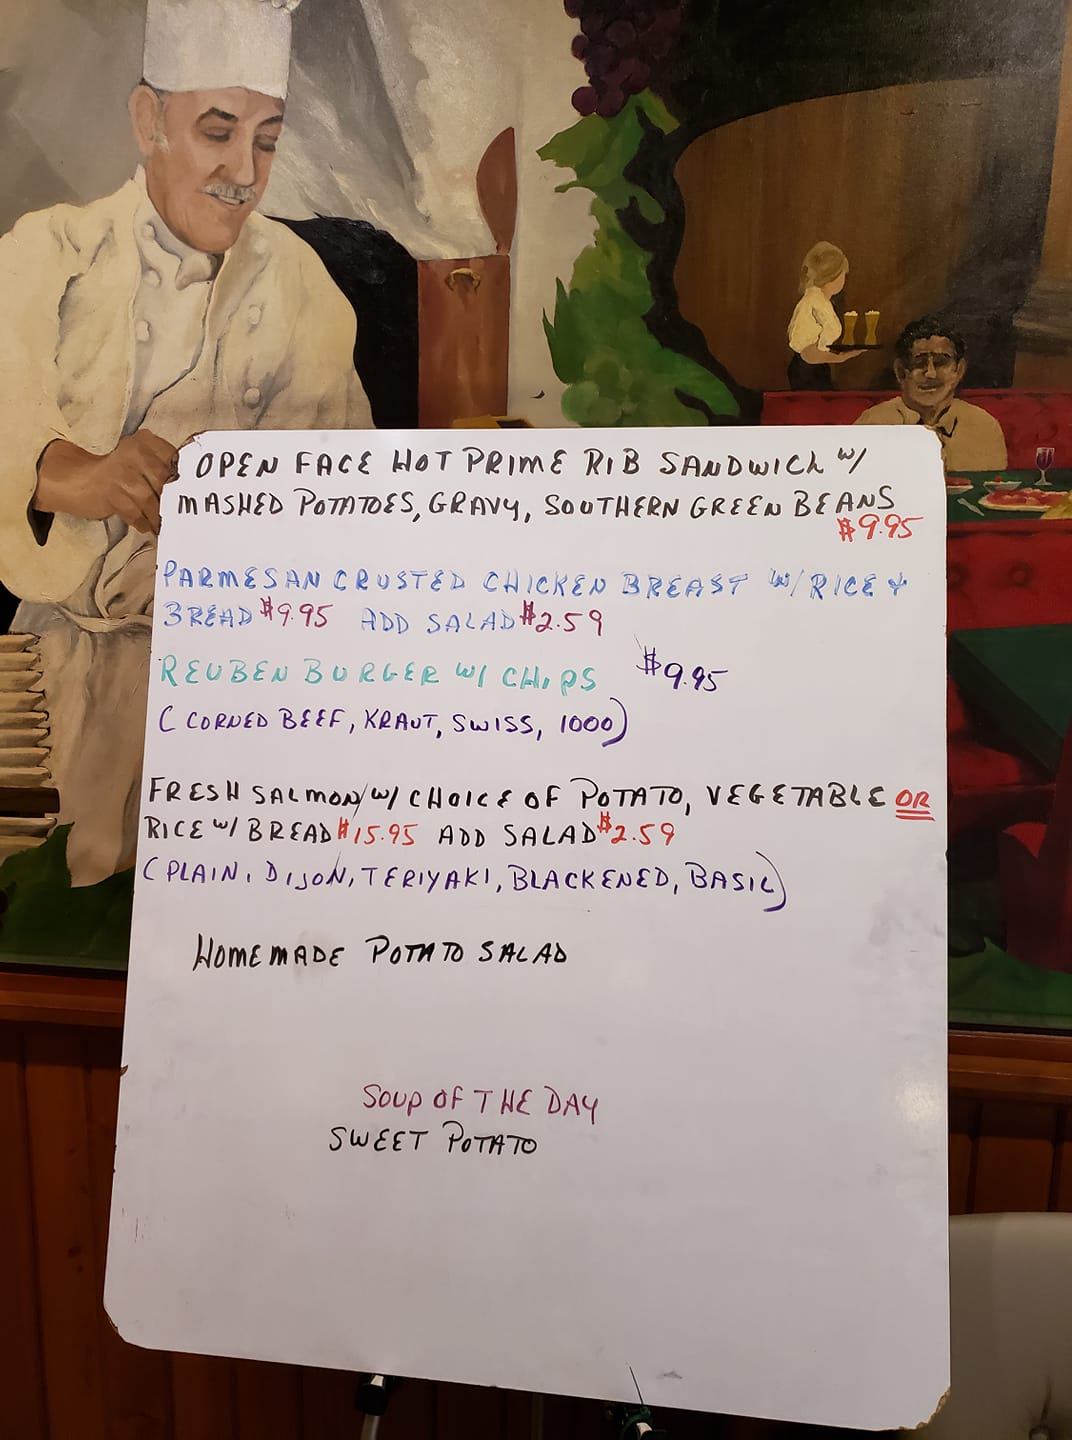 OPEN FACE HOT PRIME RIB SANDWICH W/
MASHED POTATOES, GRAVY, SOUTHERN GREEN BEANS
$9.95
PARMESAN CRUSTED CHICKEN BREAST W/ RICE +
BREAD $9.95 ADD SALAD $2.59
REUBEN BURGER W/ CHIPS $9.95
(CORNED BEEF, KRAUT, SWISS, 1000)
FRESH SALMON W/ CHOICE OF POTATO, VEGETABLE OR
RICE W/ BREAD $15.95 ADD SALAD $2.59
(PLAIN, DIJON, TERIYAKI, BLACKENED, BASIL)
HOMEMADE POTATO SALAD
SOUP OF THE DAY
SWEET POTATO